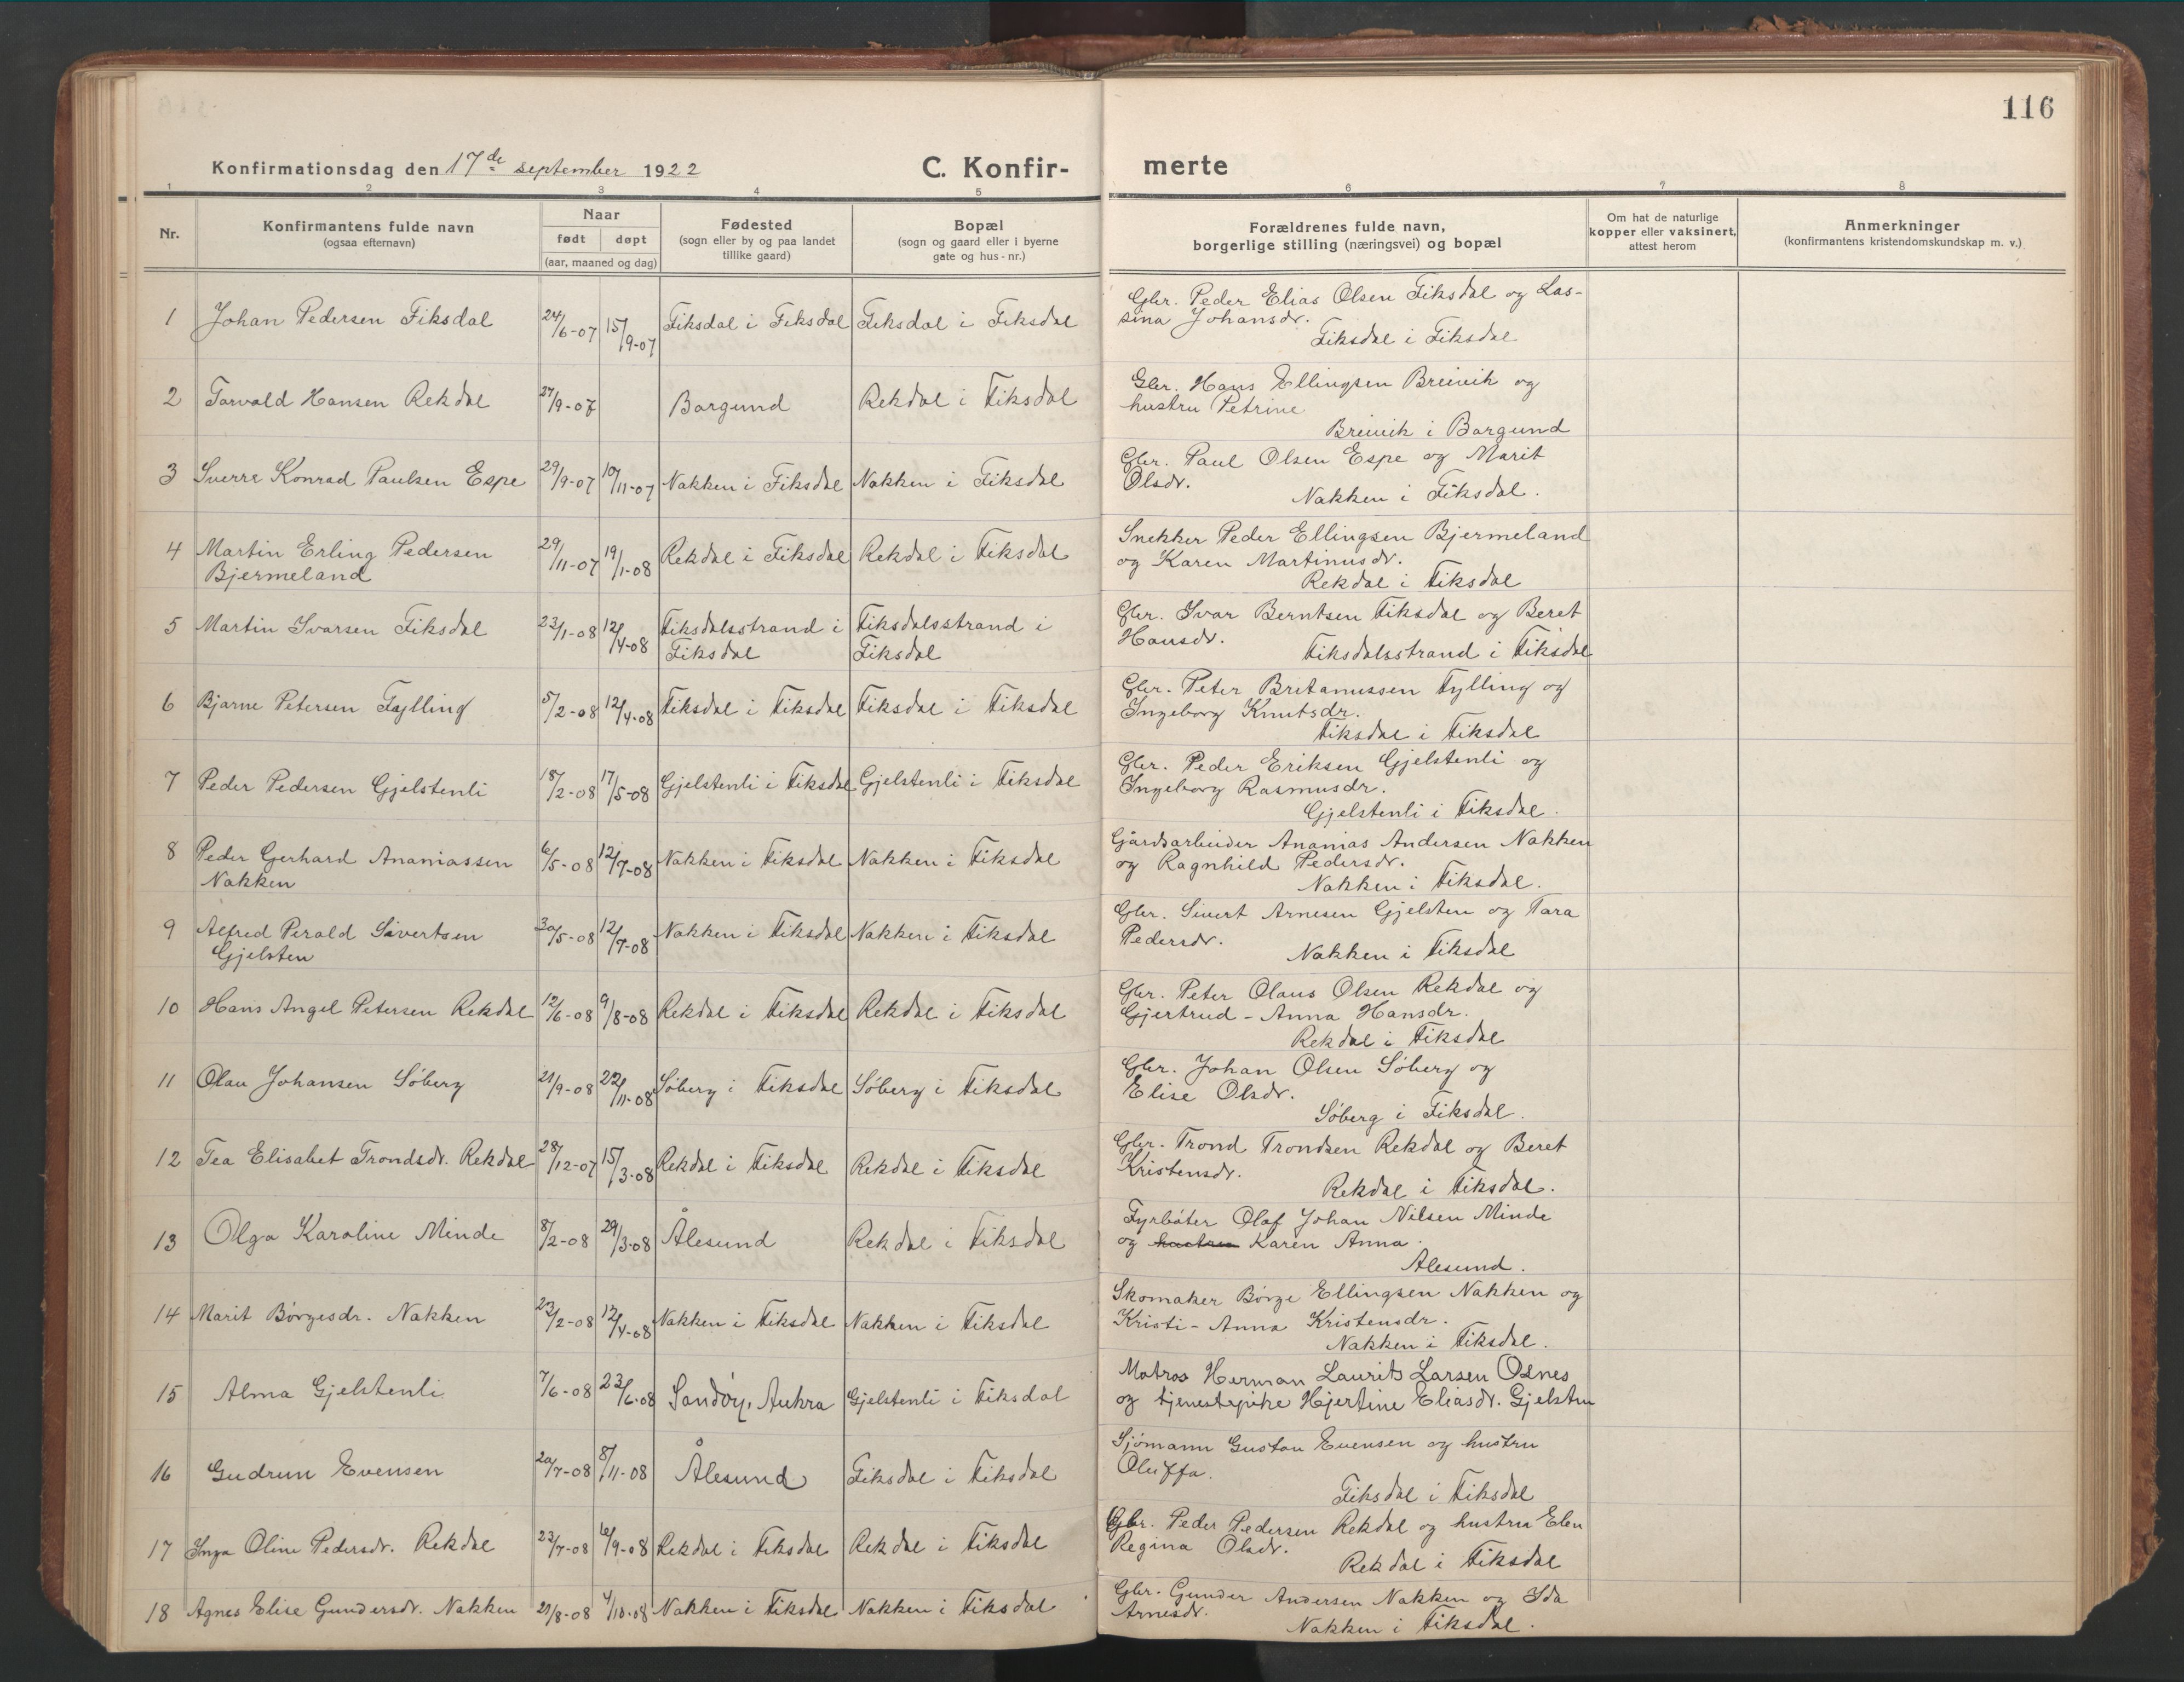 116
Konfirmationsdag den 17de september 1922
C. Konfir-
merte
1 2 3 4 5 6 7 8
Nr.
Konfirmantens fulde navn
(ogsaa efternavn)
Naar
født døpt
(aar, maaned og dag)
Fødested
(sogn eller by og paa landet
tillike gaard)
Bopæl
(sogn og gaard eller i byerne
gate og hus-nr.)
Forældrenes fulde navn,
borgerlige stilling (næringsvei) og bopæl
Om hat de naturlige
kopper eller vaksinert,
attest herom
Anmerkninger
(konfirmantens kristendomskundskap m. v.)
1 Johan Pedersen Fiksdal 24/6-07 15/9-07 Fiksdal i Fiksdal Fiksdal i Fiksdal
Gbr. Peder Elias Olsen Fiksdal og Las-
sina Johansdr.
Fiksdal i Fiksdal
2 Torvald Hansen Rekdal 27/9-07 Borgund Rekdal i Fiksdal
Gbr. Hans Ellingsen Breivik og
hustru Petrine
Breivik i Borgund
3 Sverre Konrad Paulsen Espe 29/9-07 10/11-07 Nakken i Fiksdal Nakken i Fiksdal
Gbr. Paul Olsen Espe og Marit
Olsdr.
Nakken i Fiksdal.
4 Martin Erling Pedersen
Bjermeland
29/11-07 19/1-08 Rekdal i Fiksdal Rekdal i Fiksdal
Snekker Peder Ellingsen Bjermeland
og Karen Martinusdr.
Rekdal i Fiksdal
5 Martin Ivarsen Fiksdal 23/1-08 12/4-08
Fiksdalsstrand i
Fiksdal
Fiksdalsstrand i
Fiksdal
Gbr. Ivar Berntsen Fiksdal og Beret
Hansdr.
Fiksdalsstrand i Fiksdal
6 Bjarne Petersen Fylling 5/2-08 12/4-08 Fiksdal i Fiksdal Fiksdal i Fiksdal
Gbr. Peter Bretanussen Fylling og
Ingeborg Knutsdr.
Fiksdal i Fiksdal
7 Peder Pedersen Gjelstenli 18/2-08 17/5-08 Gjelstenli i Fiksdal Gjelstenli i Fiksdal
Gbr. Peder Eriksen Gjelstenli og
Ingeborg Rasmusdr.
Gjelstenli i Fiksdal.
8 Peder Gerhard Ananiassen
Nakken
6/5-08 12/7-08 Nakken i Fiksdal Nakken i Fiksdal
Gårdsarbeider Ananias Andersen Nakken
og Ragnhild Pedersdr.
Nakken i Fiksdal.
9 Alfred Perald Sivertsen
Gjelsten
30/5-08 12/7-08 Nakken i Fiksdal Nakken i Fiksdal
Gbr. Sivert Arnesen Gjelsten og Tara
Pedersdr.
Nakken i Fiksdal
10 Hans Angel Petersen Rekdal 12/6-08 9/8-08 Rekdal i Fiksdal Rekdal i Fiksdal
Gbr. Peter Olaus Olsen Rekdal og
Gjertrud-Anna Hansdr.
Rekdal i Fiksdal
11 Olav Johansen Söberg 21/9-08 22/11-08 Söberg i Fiksdal Söberg i Fiksdal
Gbr. Johan Olsen Söberg og
Elise Olsdr.
Söberg i Fiksdal.
12 Tea Elisabet Trondsdr. Rekdal 28/12-07 15/3-08 Rekdal i Fiksdal Rekdal i Fiksdal
Gbr. Trond Trondsen Rekdal og Beret
Kristensdr.
Rekdal i Fiksdal.
13 Olga Karoline Minde 8/2-08 29/3-08 Ålesund Rekdal i Fiksdal
Fyrböter Olaf Johan Nilsen Minde
og hustru Karen Anna.
Ålesund.
14 Marit Börgesdr. Nakken 23/2-08 12/4-08 Nakken i Fiksdal Nakken i Fiksdal
Skomaker Börge Ellingsen Nakken og
Kristi-Anna Kristensdr.
Nakken i Fiksdal.
15 Alma Gjelstenli 7/6-08 23/6-08 Sandöy, Aukra Gjelstenli i Fiksdal
Matros Herman Laurits Larsen Osnes
og tjenestepike Hjertine Eliasdr. Gjelsten
16 Gudrun Evensen 20/7-08 8/11-08 Ålesund Fiksdal i Fiksdal
Sjömann Gustav Evensen og hustru
Oluffa.
Fiksdal i Fiksdal
17 Inga Oline Pedersdr. Rekdal 23/7-08 6/9-08 Rekdal i Fiksdal Rekdal i Fiksdal
Gbr. Peder Pedersen Rekdal og hustru Elen
Regina Olsdr.
Rekdal i Fiksdal
18 Agnes Elise Gundersdr. Nakken 21/8-08 4/10-08 Nakken i Fiksdal Nakken i Fiksdal
Gbr. Gunder Andersen Nakken og Ida
Arnesdr.
Nakken i Fiksdal.